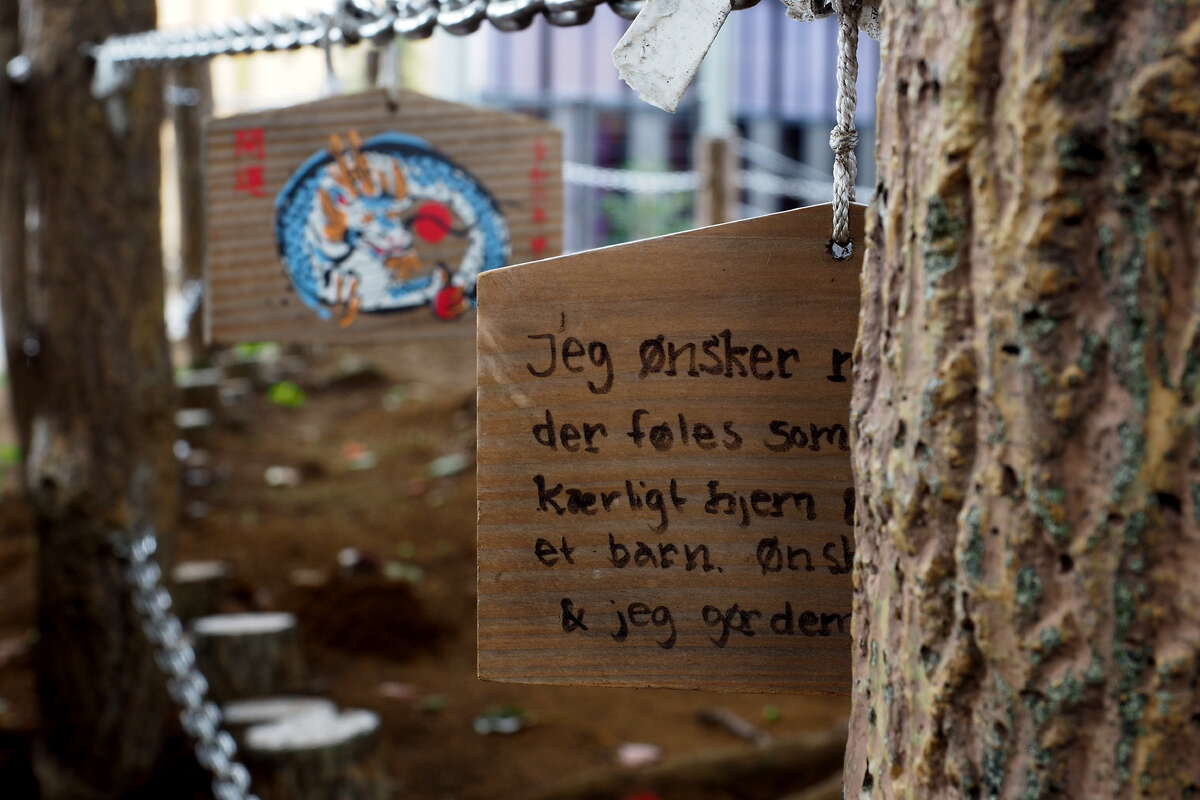 開運
Jeg ønsker
der føles som
kærligt hjem
et barn.
& jeg gør dem